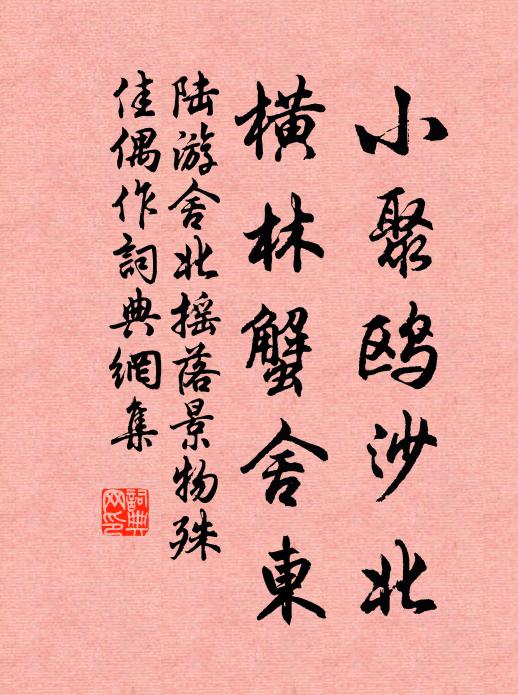 小聚鸥沙北
横林蟹舍東
陆游舍北摇落景物殊
佳偶作詞典網集
詞典
网印